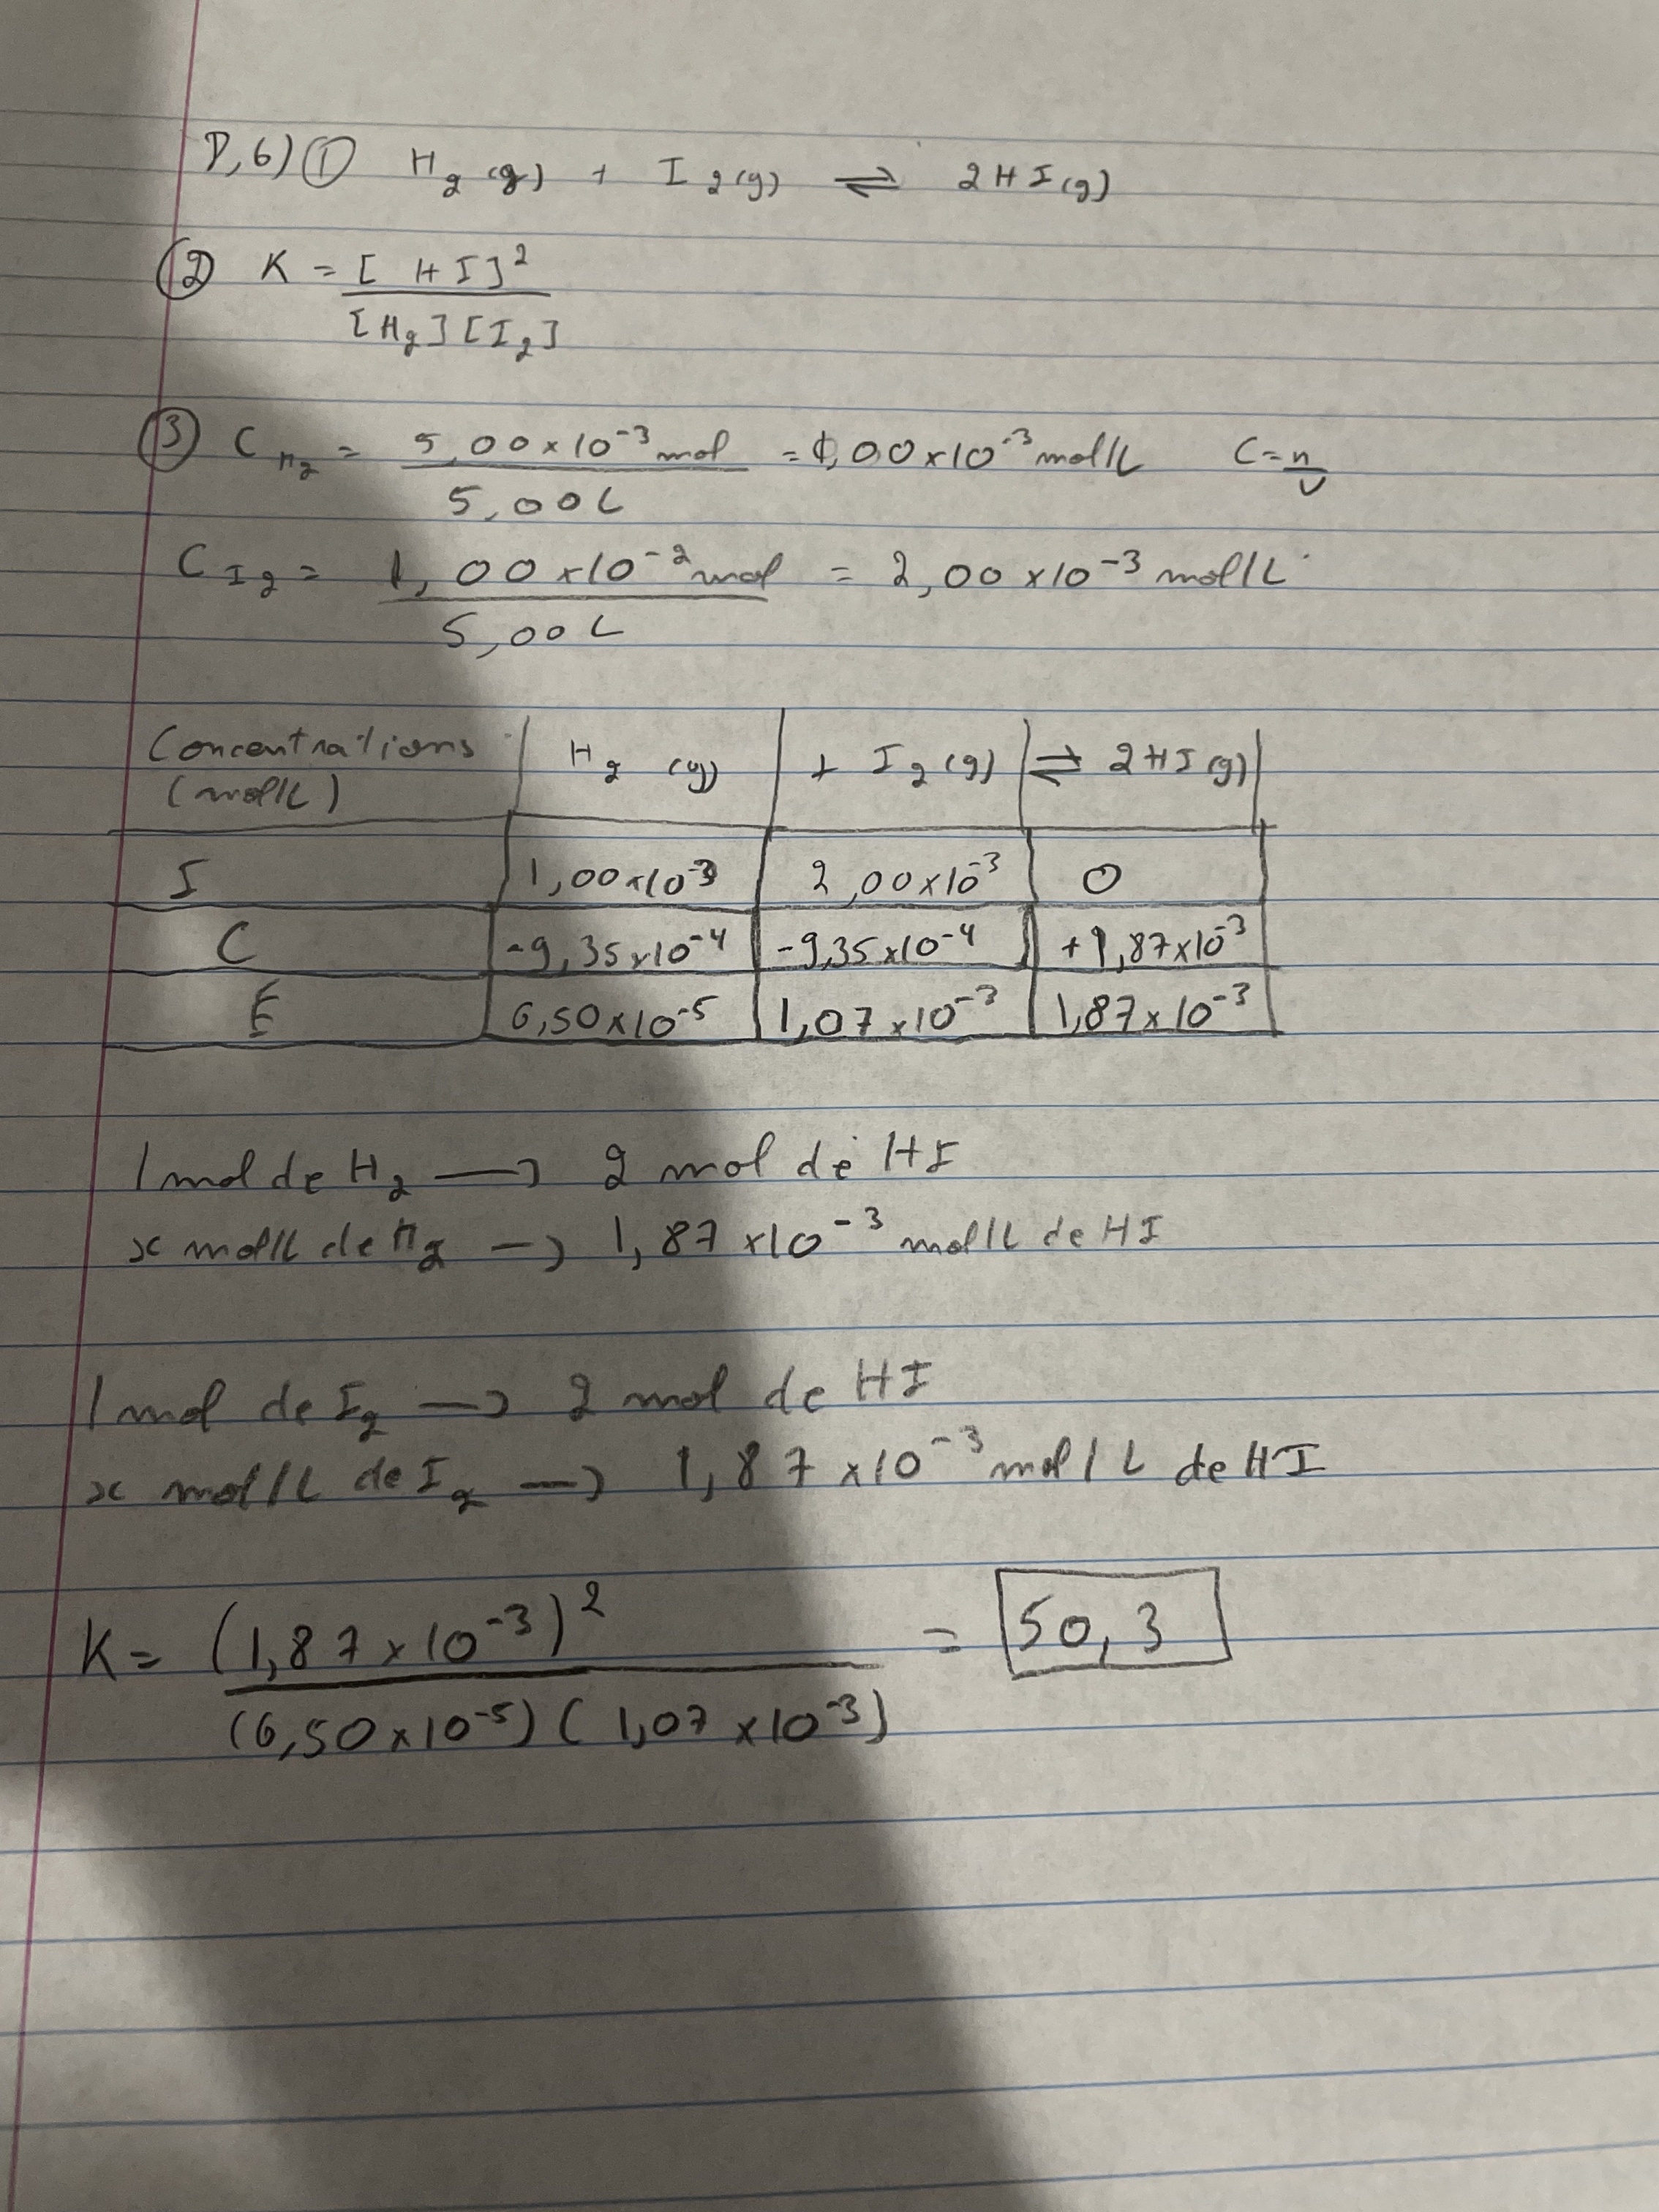 P,6) ① H₂(g) + I₂(g) ⇌ 2HI(g)
② K = [HI]²
[H₂][I₂]
③ C H₂ = 5,00 × 10⁻³ mol = 1,00 × 10⁻³ mol/L C = n
5,00 L V
C I₂ = 1,00 × 10⁻² mol = 2,00 × 10⁻³ mol/L
5,00 L
Concentrations H₂(g) + I₂(g) ⇌ 2HI(g)
(mol/L)
I 1,00×10⁻³ 2,00×10⁻³ 0
C -9,35×10⁻⁴ -9,35×10⁻⁴ +1,87×10⁻³
E 6,50×10⁻⁵ 1,07×10⁻³ 1,87×10⁻³
1 mol de H₂ → 2 mol de HI
x mol/L de H₂ → 1,87×10⁻³ mol/L de HI
1 mol de I₂ → 2 mol de HI
x mol/L de I₂ → 1,87×10⁻³ mol/L de HI
K = (1,87×10⁻³)² = 50,3
(6,50×10⁻⁵)(1,07×10⁻³)